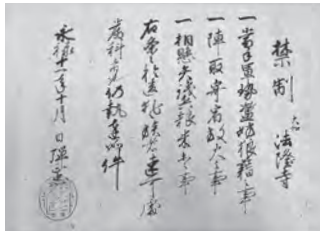 禁制 和州 法隆寺
一当手軍勢濫妨狼藉之事
一陣取寄宿放火之事
一相懸矢銭兵粮米事
右条々於違犯輩者速可処
厳科者也仍執達如件
永禄十一年十月 日 弾正